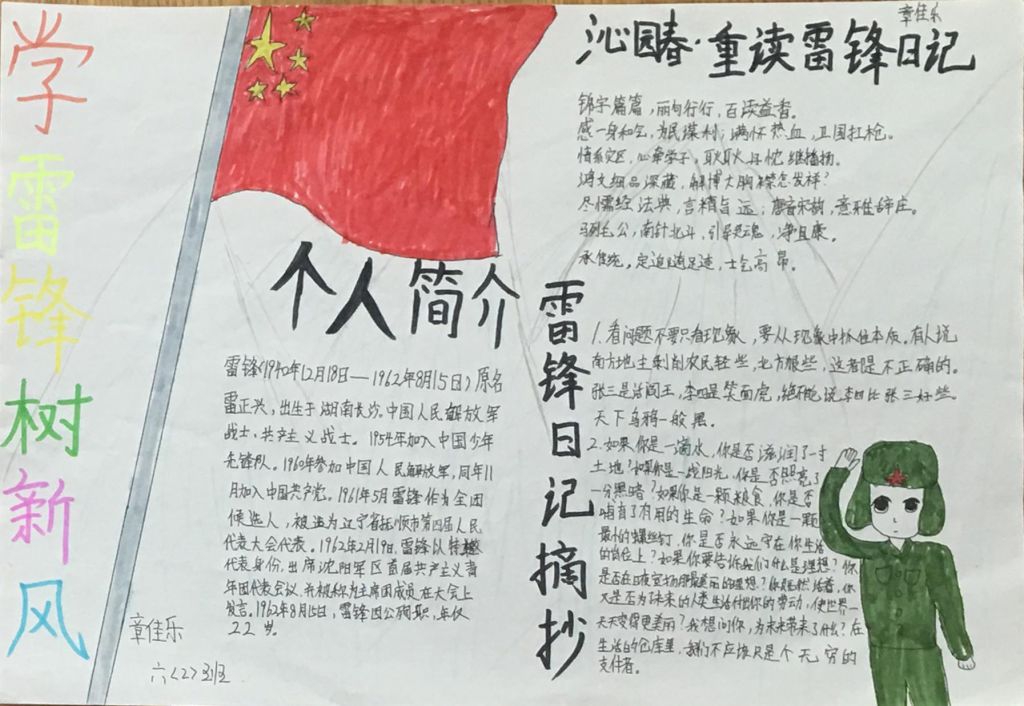 学雷锋树新风
章佳乐
沁园春·重读雷锋日记
锦字篇篇，丽句行行，百读益香。
感一身和公，为民谋利；满怀热血，卫国扛枪。
情系灾区，心牵学子，耿耿丹忱继播扬。
鸿文细品深藏，解博大胸襟怎发样？
尽儒经法典，言精旨远；唐音宋韵，意雅辞庄。
马列毛公，南针北斗，引导灵魂，净且康。
承传统，定追随足迹，士气高昂。
个人简介
雷锋（1940年12月18日—1962年8月15日）原名
雷正兴，出生于湖南长沙。中国人民解放军
战士，共产主义战士。1954年加入中国少年
先锋队。1960年参加中国人民解放军，同年11
月加入中国共产党。1961年5月雷锋作为全团
候选人，被选为辽宁省抚顺市第四届人民
代表大会代表。1962年2月19日，雷锋以特邀
代表身份，出席沈阳军区首届共产主义青
年团代表会议，并被称为主席团成员在大会上
发言。1962年8月15日，雷锋因公殉职，年仅
22岁。
章佳乐
六〈2〉班
雷锋日记摘抄
1.看问题不要只看现象，要从现象中抓住本质。有人说
南方地主剥削农民轻些，北方狠些，这都是不正确的。
张三是活阎王，李四是笑面虎，绝不能说李四比张三好些。
天下乌鸦一般黑。
2.如果你是一滴水，你是否滋润了一寸
土地？如果你是一线阳光，你是否照亮了
一分黑暗？如果你是一颗粮食，你是否
哺育了有用的生命？如果你是一颗
最小的螺丝钉，你是否永远守在你生活
的岗位上？如果你要告诉我们什么是理想？你
是否在日夜宣扬那最美丽的理想？你既然活着，你
又是否为了未来的人类生活付出你的劳动，使世界一
天天变得更美丽？我想问你，为未来带来了什么？在
生活的仓库里，我们不应该只是个无穷的
支付者。